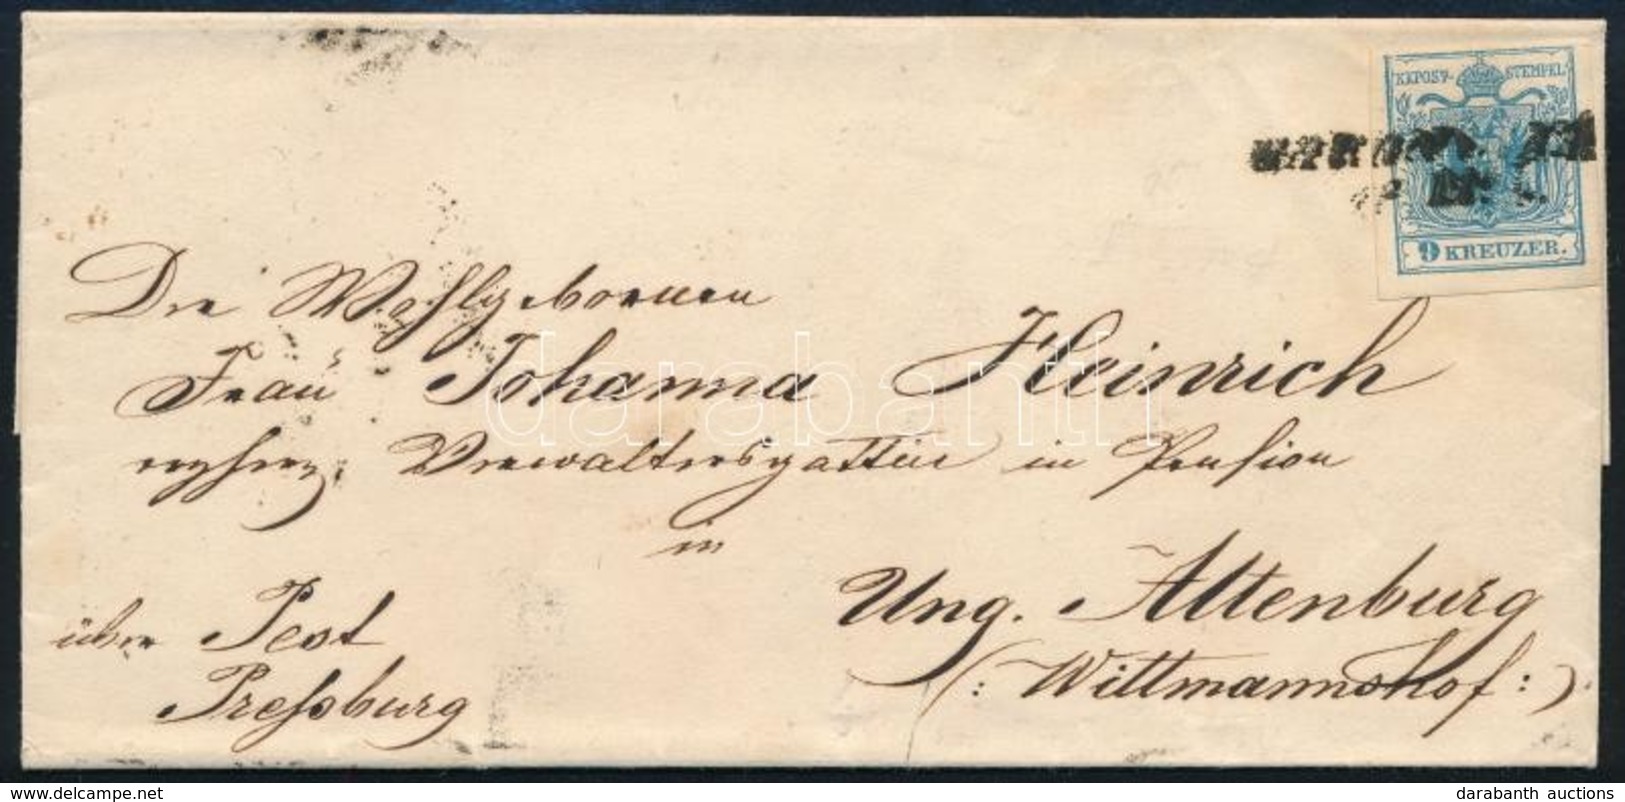 KKPOST-STEMPEL
9 KREUZER.
Die Wohlgebornen
Frau Johanna Heinrich
erzherz: Verwaltersgattin in Pension
in
Ung. Altenburg
(: Wittmannshof :)
über Pest
Pressburg
darabanth
www.delcampe.net
darabanth auctions